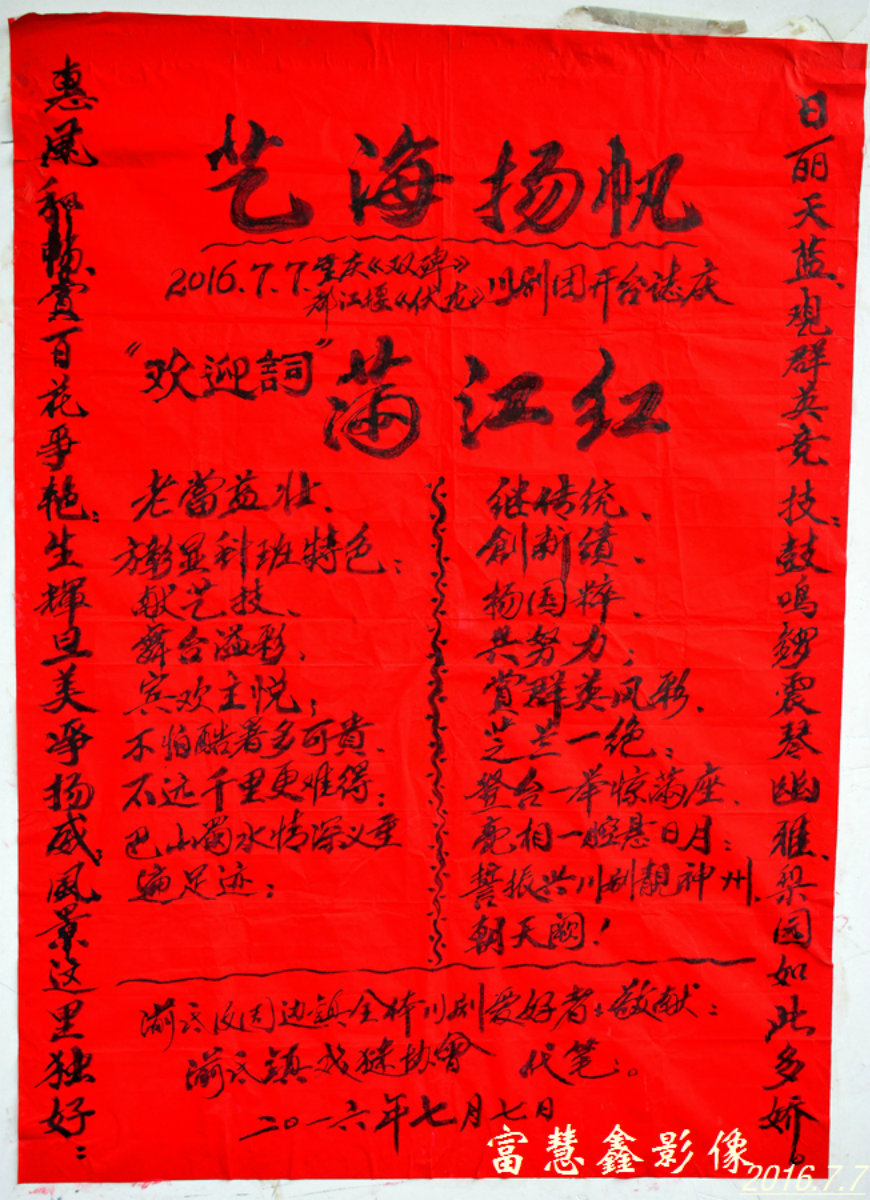 艺海扬帆
2016.7.7.重庆《双碑》都江堰《伏龙》川剧团开台誌庆
"欢迎詞"
满江红
老當益壮、
澎显科班特色；
献艺技、
舞台溢彩、
宾欢主悦；
不怕酷暑多可貴、
不远千里更难得；
巴山蜀水情深义重
遍足迹；
继传统、
創新績、
扬国粹、
共努力；
赏群英风彩、
芝兰一绝；
登台一举惊满座、
亮相一腔悬日月；
誓振兴川剧靓神州
朝天阙！
日丽天蓝、观群英竞技；鼓鸣锣震琴幽雅、梨园如此多娇。
惠风和畅、赏百花争艳；生輝旦美净扬威、风景这里独好；
及周边鎮全体川剧爱好者：敬献：
鎮戏迷协會 代笔。
二〇一六年七月七日
富慧鑫影像
2016.7.7